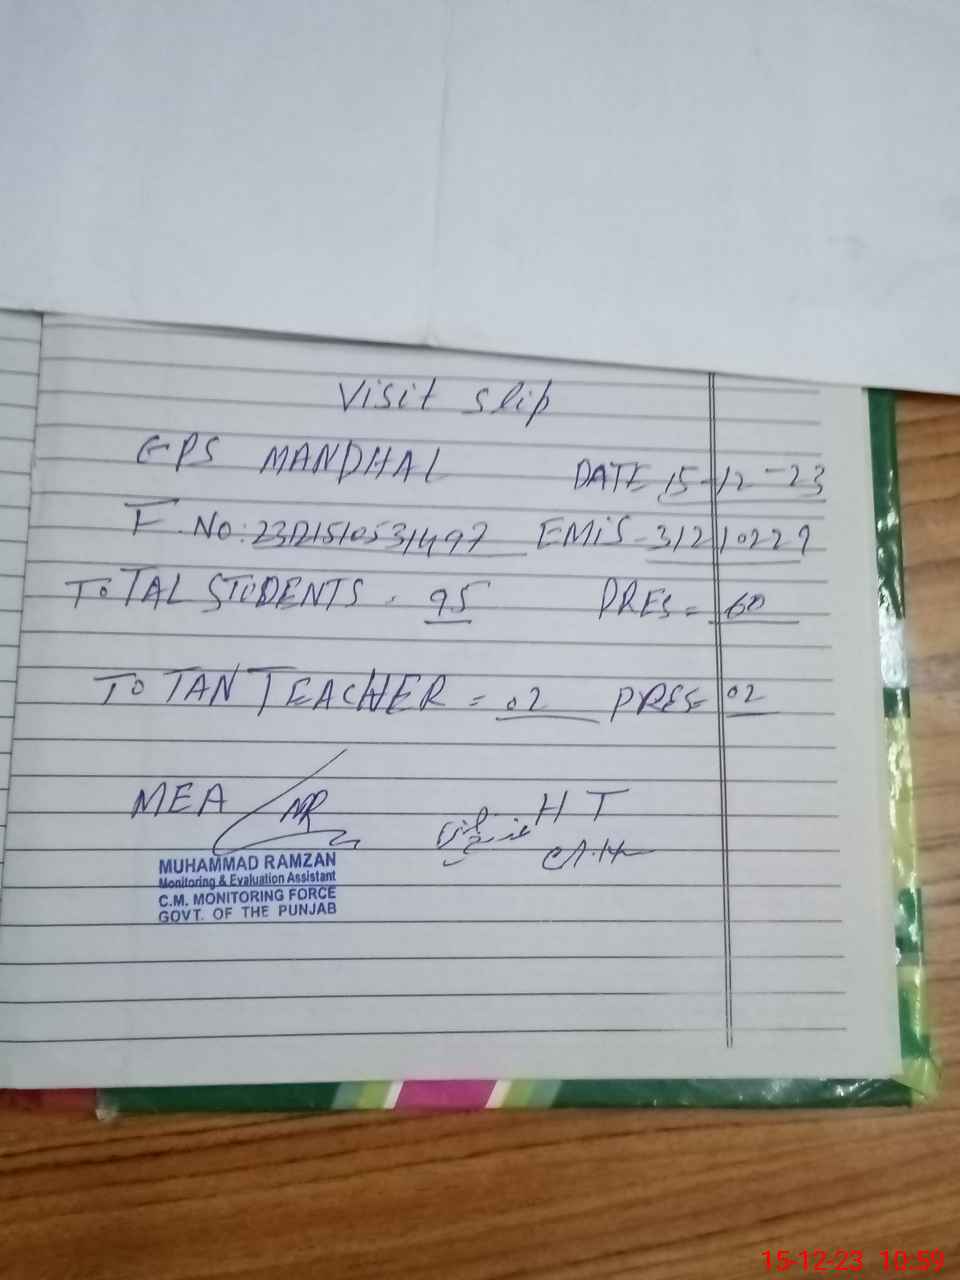 Visit slip
GPS MANDHAL DATE 15-12-23
F. No: 23D1510531497 EMIS-31210229
TOTAL STUDENTS. 95 PRES = 60
TOTAN TEACHER = 02 PRES= 02
MEA MR HT
MUHAMMAD RAMZAN
Monitoring & Evaluation Assistant
C.M. MONITORING FORCE
GOVT. OF THE PUNJAB
15-12-23 10:59